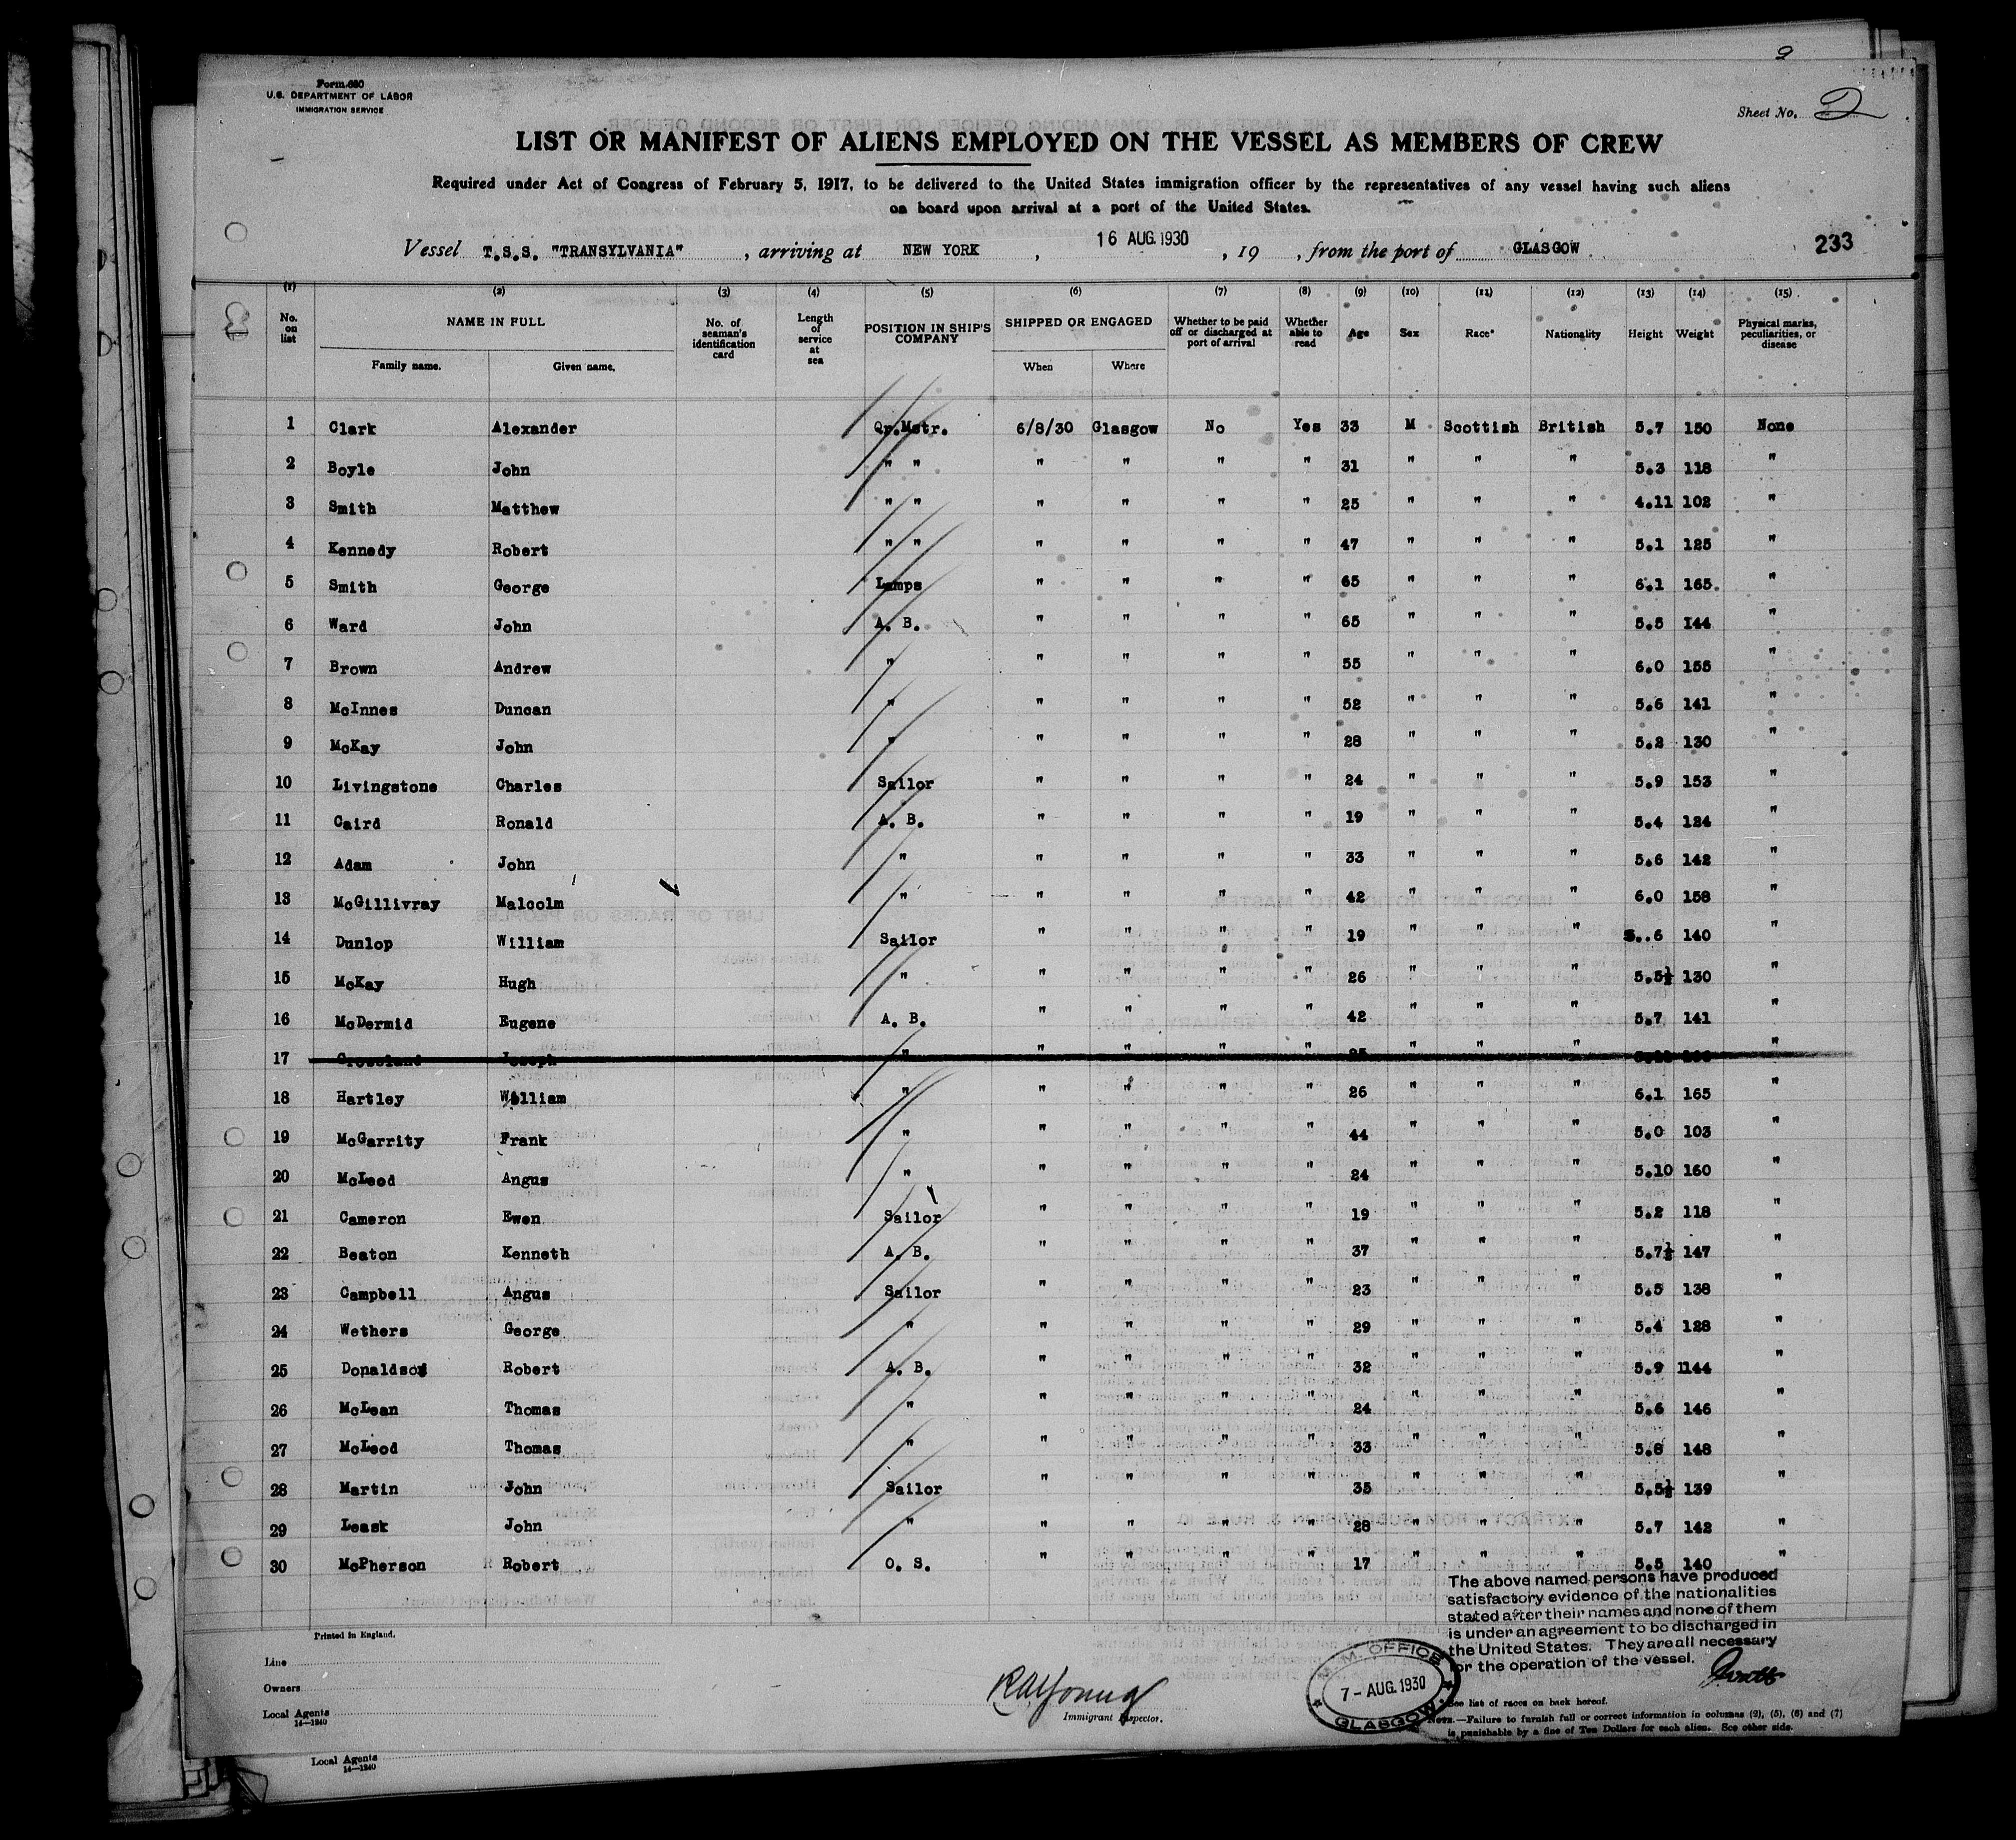 Form 680
U.S. DEPARTMENT OF LABOR
IMMIGRATION SERVICE
Sheet No. 2
LIST OR MANIFEST OF ALIENS EMPLOYED ON THE VESSEL AS MEMBERS OF CREW
Required under Act of Congress of February 5, 1917, to be delivered to the United States immigration officer by the representatives of any vessel having such aliens
on board upon arrival at a port of the United States.
Vessel T.S.S. "TRANSYLVANIA", arriving at NEW YORK, 16 AUG. 1930, 19 , from the port of GLASGOW 233
(1) (2) (3) (4) (5) (6) (7) (8) (9) (10) (11) (12) (13) (14) (15)
No. on list NAME IN FULL Family name. Given name. No. of seaman's identification card Length of service at sea POSITION IN SHIP'S COMPANY SHIPPED OR ENGAGED When Where Whether to be paid off or discharged at port of arrival Whether able to read Age Sex Race* Nationality Height Weight Physical marks, peculiarities, or disease
1 Clark Alexander Qr.Mstr. 6/8/30 Glasgow No Yes 33 M Scottish British 5.7 150 None
2 Boyle John " " " " " " 31 " " " 5.3 118 "
3 Smith Matthew " " " " " " 25 " " " 4.11 102 "
4 Kennedy Robert " " " " " " 47 " " " 5.1 125 "
5 Smith George Lamps " " " " 65 " " " 6.1 165. "
6 Ward John A. B. " " " " 65 " " " 5.5 144 "
7 Brown Andrew " " " " " 55 " " " 6.0 155 "
8 McInnes Duncan " " " " " 52 " " " 5.6 141 "
9 McKay John " " " " " 28 " " " 5.2 130 "
10 Livingstone Charles Sailor " " " " 24 " " " 5.9 153 "
11 Caird Ronald A. B. " " " " 19 " " " 5.4 124 "
12 Adam John " " " " " 33 " " " 5.6 142 "
13 McGillivray Malcolm " " " " " 42 " " " 6.0 158 "
14 Dunlop William Sailor " " " " 19 " " " 5..6 140 "
15 McKay Hugh " " " " " 26 " " " 5.5½ 130 "
16 McDermid Eugene A. B. " " " " 42 " " " 5.7 141 "
17 Joseph " " " " " " " " "
18 Hartley William " " " " " 26 " " " 6.1 165 "
19 McGarrity Frank " " " " " 44 " " " 5.0 103 "
20 McLeod Angus " " " " " 24 " " " 5.10 160 "
21 Cameron Ewen Sailor " " " " 19 " " " 5.2 118 "
22 Beaton Kenneth A. B. " " " " 37 " " " 5.7½ 147 "
23 Campbell Angus Sailor " " " " 23 " " " 5.5 138 "
24 Wethers George " " " " " 29 " " " 5.4 128 "
25 Donaldson Robert A. B. " " " " 32 " " " 5.9 1144 "
26 McLean Thomas " " " " " 24 " " " 5.6 146 "
27 McLeod Thomas " " " " " 33 " " " 5.8 148 "
28 Martin John Sailor " " " " 35 " " " 5.5½ 139 "
29 Leask John " " " " " 28 " " " 5.7 142 "
30 McPherson Robert O. S. " " " " 17 " " " 5.5 140 "
The above named persons have produced
satisfactory evidence of the nationalities
stated after their names and none of them
is under an agreement to be discharged in
the United States. They are all necessary
for the operation of the vessel.
Printed in England.
Line
Owners
Local Agents
14—1240
Immigrant Inspector.
M.M. OFFICE
7 - AUG. 1930
GLASGOW
*See list of races on back hereof.
NOTE.—Failure to furnish full or correct information in columns (2), (5), (6) and (7)
is punishable by a fine of Ten Dollars for each alien. See other side.
Local Agents
14—1240